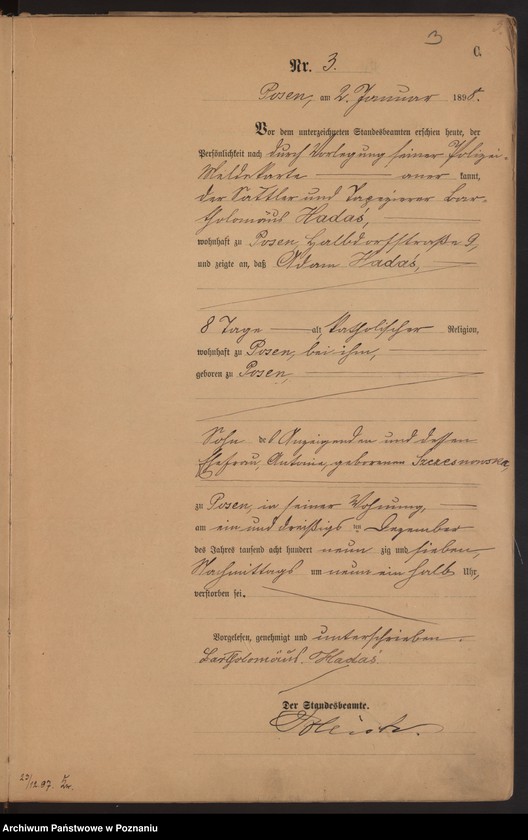 3
C.
Nr. 3.
Posen, am 2. Januar 1898.
Vor dem unterzeichneten Standesbeamten erschien heute, der
Persönlichkeit nach durch Vorlegung seiner Polizei-
Meldekarte anerkannt,
der Sattler und Tapezierer Bar-
tholomäus Hadaś,
wohnhaft zu Posen, Halbdorfstraße 9,
und zeigte an, daß Adam Hadaś,
8 Tage alt, katholischer Religion,
wohnhaft zu Posen, bei ihm,
geboren zu Posen,
Sohn des Anzeigenden und dessen
Ehefrau, Antonie, geborenen Szczesnowska,
zu Posen, in seiner Wohnung,
am ein und dreißigsten Dezember
des Jahres tausend acht hundert neunzig und sieben,
Nachmittags um neun ein halb Uhr,
verstorben sei.
Vorgelesen, genehmigt und unterschrieben.
Bartholomäus Hadaś
Der Standesbeamte.
23/12.97.
Archiwum Państwowe w Poznaniu